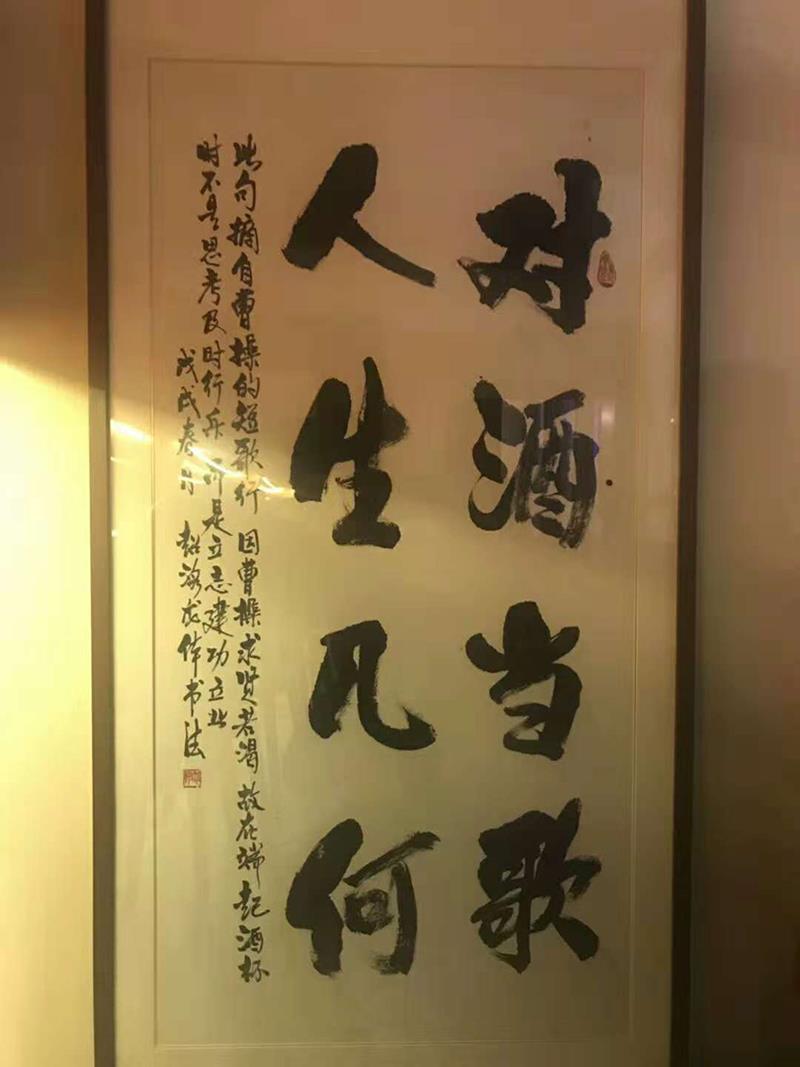 对酒当歌
人生几何
此句摘自曹操的短歌行 因曹操求贤若渴 故在端起酒杯
时不是思考及时行乐 而是立志建功立业
戊戌春月 龙体书法